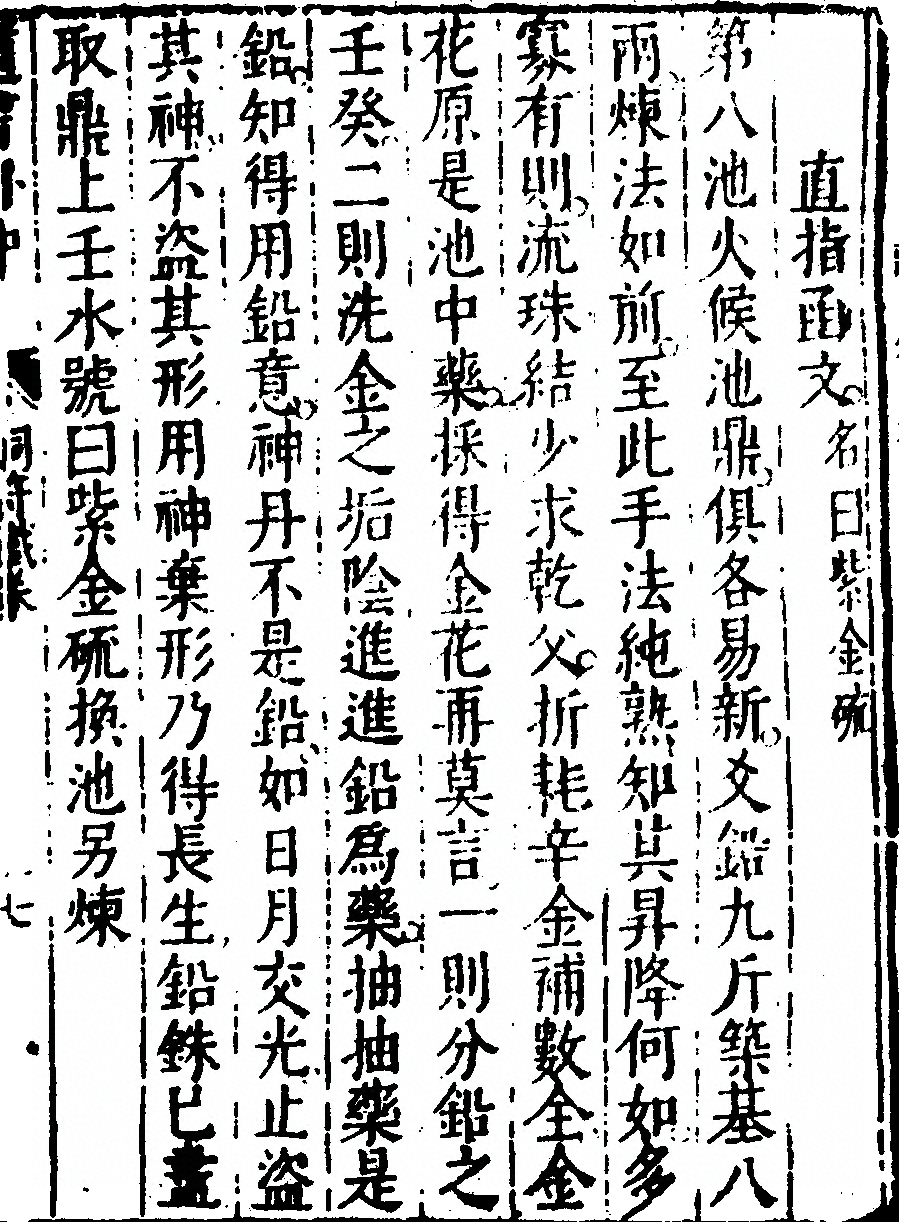 直指函文名曰紫金硫
第八池火候池鼎俱各易新爻鉛九斤築基八
兩煉法如前至此手法純熟知其昇降何如多
寡有則流珠結少求乾父折耗辛金補數全金
花原是池中藥採得金花再莫言一則分鉛之
壬癸二則洗金之垢陰進進鉛爲藥抽抽藥是
鉛知得用鉛意神丹不是鉛如日月交光止盜
其神不盜其形用神棄形乃得長生鉛銖已盡
取鼎上壬水號曰紫金硫換池另煉
七